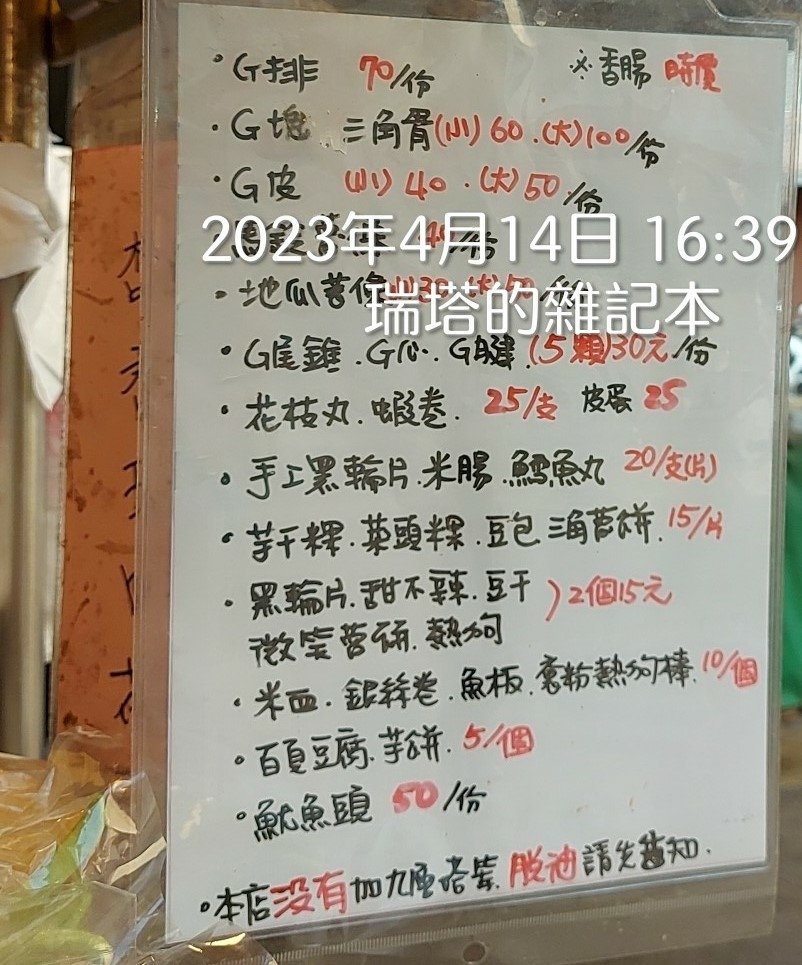 ·G排 70/份 ※香腸 時價
·G塊 三角骨(小)60.(大)100/份
·G皮 (小)40.(大)50/份
2023年4月14日 16:39
·地瓜薯條(小)30(大)50/份
瑞塔的雜記本
·G尾錐.G心.G腱.(5顆)30元/份
·花枝丸.蝦卷. 25/支 皮蛋 25
·手工黑輪片.米腸.鱈魚丸 20/支(片)
·芋干粿.菜頭粿.豆包 三角薯餅.15/片
·黑輪片.甜不辣.豆干 )2個15元
微笑薯餅.熱狗
·米血.銀絲卷.魚板.裹粉熱狗棒.10/個
·百頁豆腐.芋餅.5/個
·魷魚頭 50/份
·本店沒有加九層塔.脫油請先告知.